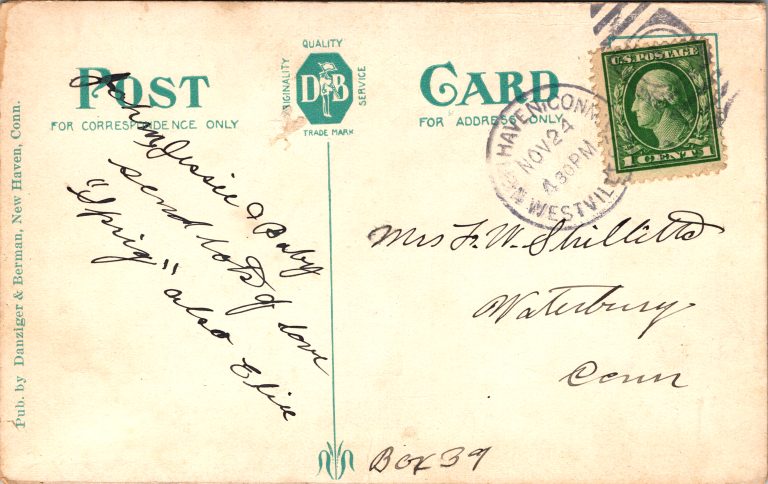 POST CARD
FOR CORRESPONDENCE ONLY
QUALITY
ORIGINALITY
SERVICE
DB
TRADE MARK
FOR ADDRESS ONLY
HAVEN, CONN.
NOV 24
4 30PM
WESTVIL
U.S. POSTAGE
1 CENT 1
John, Jessie & Baby
send lots of love
"Sprig" also Elsie
Mrs F. W. Shillitto
Waterbury
Conn
Box 39
Pub. by Danziger & Berman, New Haven, Conn.